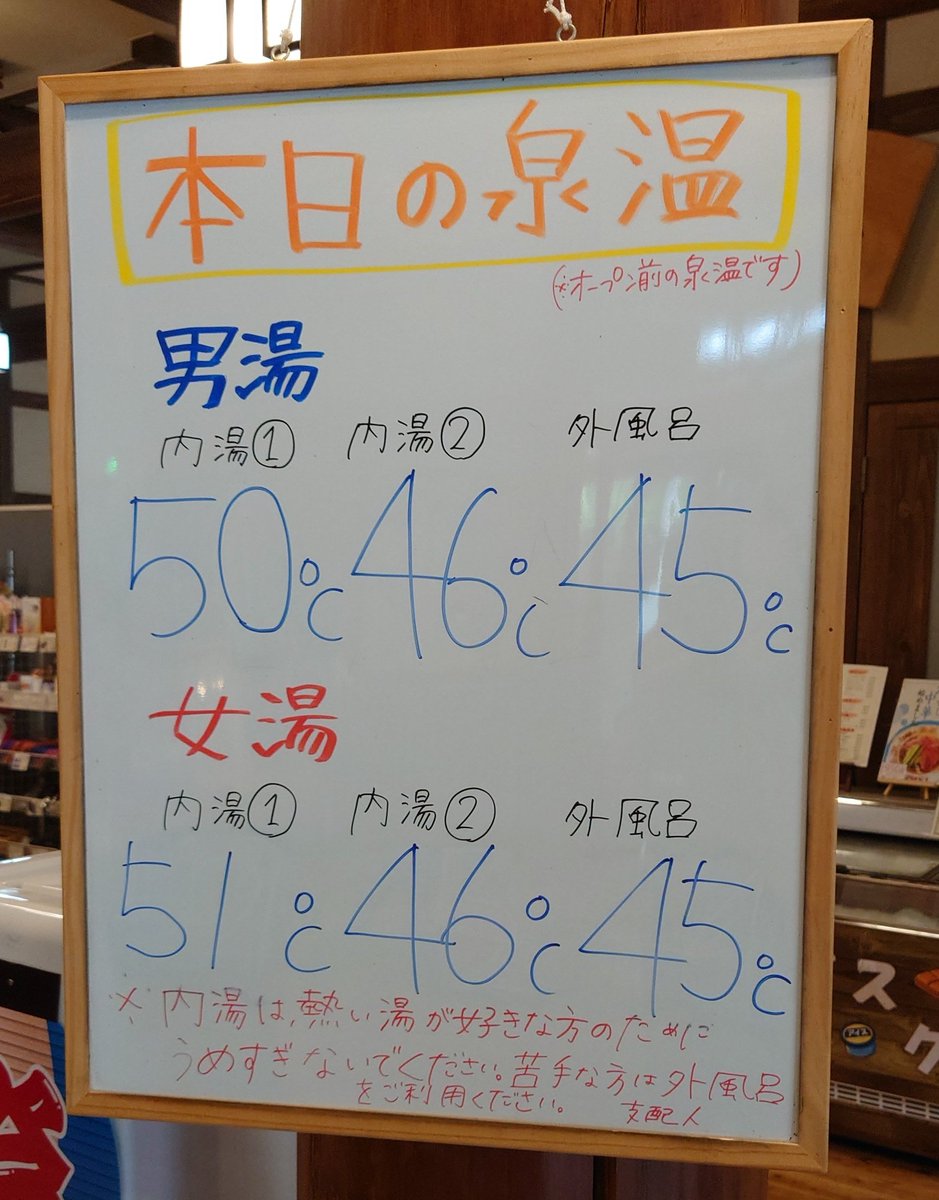 本日の泉温
(※オープン前の泉温です)
男湯
内湯① 内湯② 外風呂
50℃ 46℃ 45℃
女湯
内湯① 内湯② 外風呂
51℃ 46℃ 45℃
※内湯は、熱い湯が好きな方のために
うめすぎないでください。苦手な方は外風呂
をご利用ください。 支配人
アイス